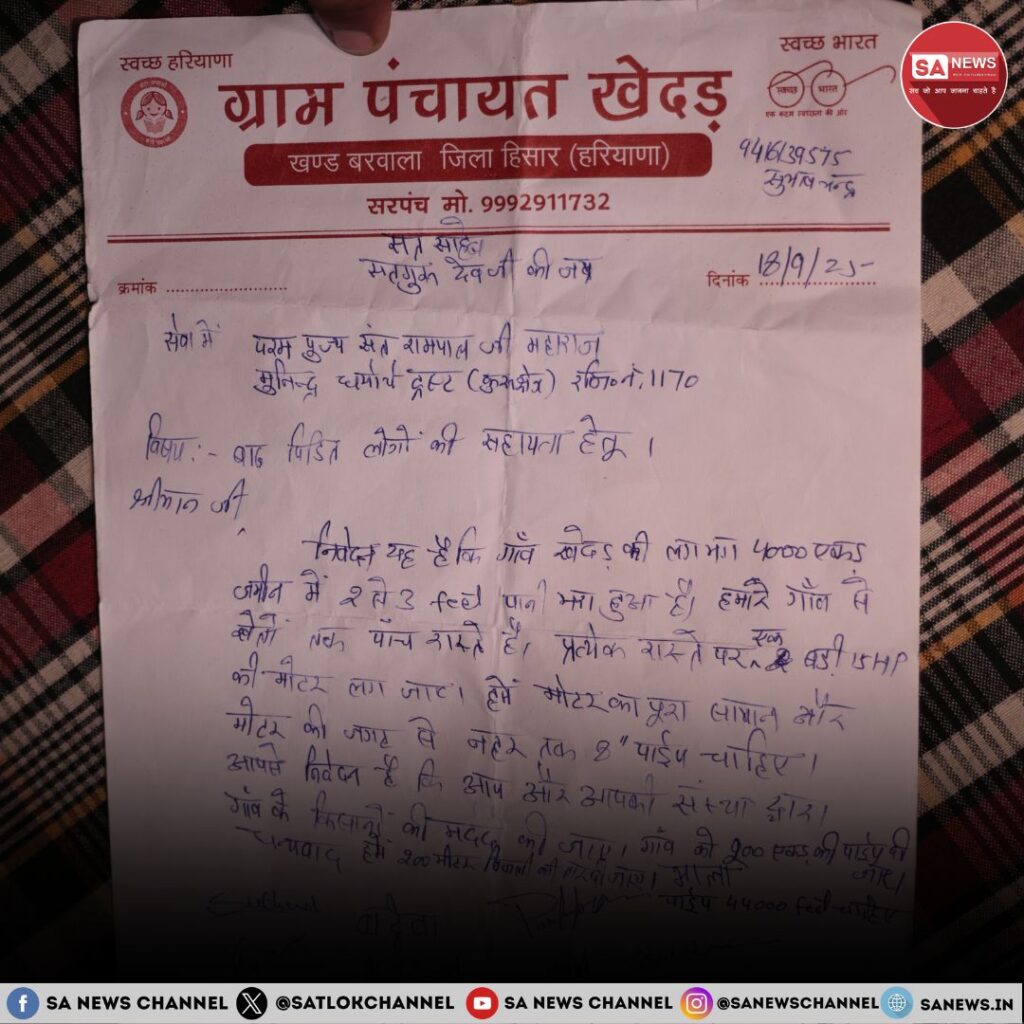 स्वच्छ हरियाणा
स्वच्छ भारत
SA NEWS
सच जो आप जानना चाहते है
ग्राम पंचायत खेदड़
स्वच्छ भारत
एक कदम स्वच्छता की ओर
खण्ड बरवाला जिला हिसार (हरियाणा)
9416139575
सुभाष चन्द्र
सरपंच मो. 9992911732
सत साहेब
सतगुरू देव जी की जय
क्रमांक
दिनांक 18/9/25
सेवा में परम पुज्य संत रामपाल जी महाराज
मुनिन्द्र धर्मार्थ ट्रस्ट (कुरूक्षेत्र) रजि०नं. 1170
विषय :- बाढ पिडित लोगों की सहायता हेतू ।
श्रीमान जी,
निवेदन यह है कि गाँव खेदड़ की लगभग 4000 एकड़
जमीन में 2 से 3 feet पानी भरा हुआ है। हमारे गाँव से
खेतों तक पाँच रास्ते है। प्रत्येक रास्ते पर एक बड़ी 15 HP
की मोटर लग जाए। हमें मोटर का पूरा सामान और
मोटर की जगह से नहर तक 8" पाईप चाहिए।
आपसे निवेदन है कि आप और आपकी संस्था द्वारा
गाँव के किसानों की मदद की जाए। गाँव को 200 एकड़ की पाईप दी
जाए।
धन्यवाद हमें 200 मीटर बिजली की तार दी जाए।
पाईप 44000 feet चाहिए
SA NEWS CHANNEL
@SATLOKCHANNEL
SA NEWS CHANNEL
@SANEWSCHANNEL
SANEWS.IN